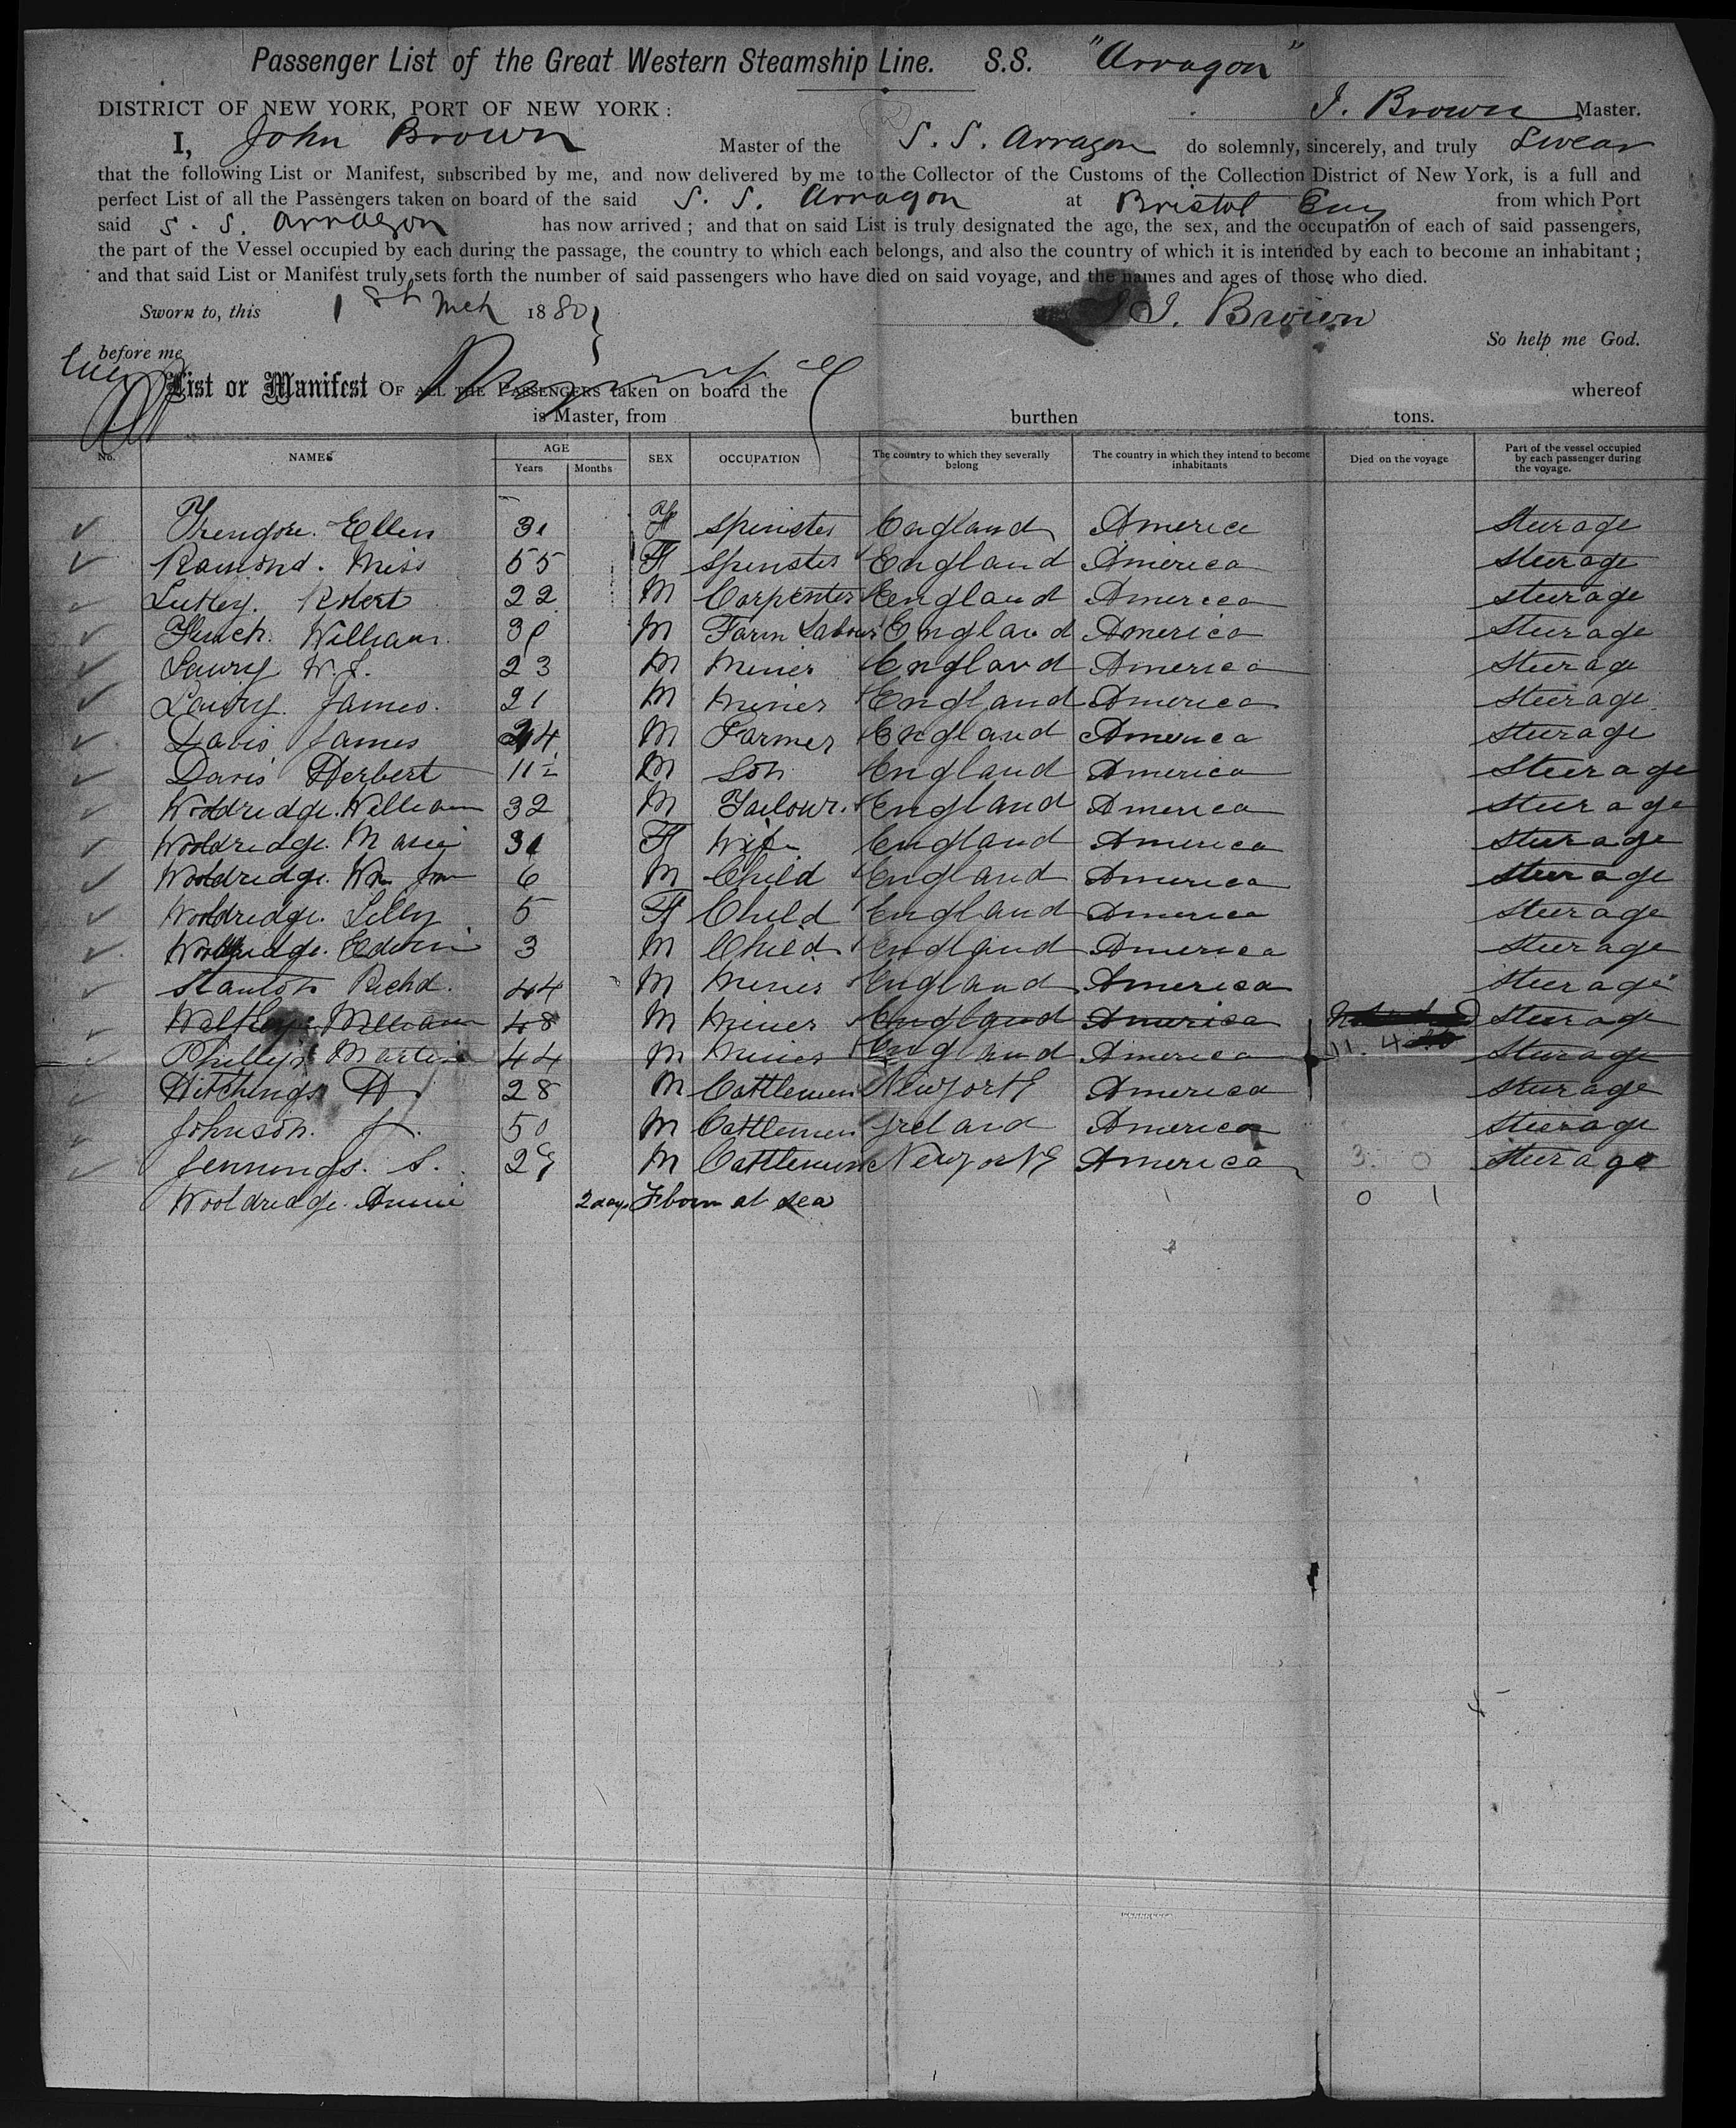 Passenger List of the Great Western Steamship Line. S.S. "Arragon"
DISTRICT OF NEW YORK, PORT OF NEW YORK: J. Brown Master.
I, John Brown Master of the S. S. Arragon do solemnly, sincerely, and truly Swear
that the following List or Manifest, subscribed by me, and now delivered by me to the Collector of the Customs of the Collection District of New York, is a full and
perfect List of all the Passengers taken on board of the said S. S. Arragon at Bristol Eng from which Port
said S. S. Arragon has now arrived; and that on said List is truly designated the age, the sex, and the occupation of each of said passengers,
the part of the Vessel occupied by each during the passage, the country to which each belongs, and also the country of which it is intended by each to become an inhabitant;
and that said List or Manifest truly sets forth the number of said passengers who have died on said voyage, and the names and ages of those who died.
Sworn to, this 1st Mch 1880 J. Brown
So help me God.
before me
List or Manifest OF ALL THE PASSENGERS taken on board the whereof
is Master, from burthen tons.
No. NAMES AGE Years Months SEX OCCUPATION The country to which they severally belong The country in which they intend to become inhabitants Died on the voyage Part of the vessel occupied by each passenger during the voyage.
Ellen 31 F Spinster England America Steerage
Ramond. Miss 55 F Spinster England America Steerage
Lutley. Robert 22 M Carpenter England America Steerage
William M Farm Labour England America Steerage
Lawry W. J. 23 M Miner England America Steerage
Lawry James. 21 M Miner England America Steerage
Davis James 44 M Farmer England America Steerage
Davis Herbert 11 M Son England America Steerage
Wooldridge. William 32 M Tailour. England America Steerage
Wooldridge. Maria 31 F Wife England America Steerage
Wooldridge. Wm 6 M Child England America Steerage
Wooldridge. Lilly 5 F Child England America Steerage
Wooldridge. Edwin 3 M Child England America Steerage
Stanton Richd. 44 M Miner England America Steerage
William 48 M Miner England America Steerage
Phillips Martin 44 M Miner England America 11. 4 Steerage
Hitchings H 28 M Cattlemen New York America Steerage
Johnson. J. 50 M Cattlemen Ireland America Steerage
Jennings. S. 29 M Cattlemen New York America 3. 0 Steerage
Wooldridge. Annie 2 days F born at sea 0 1